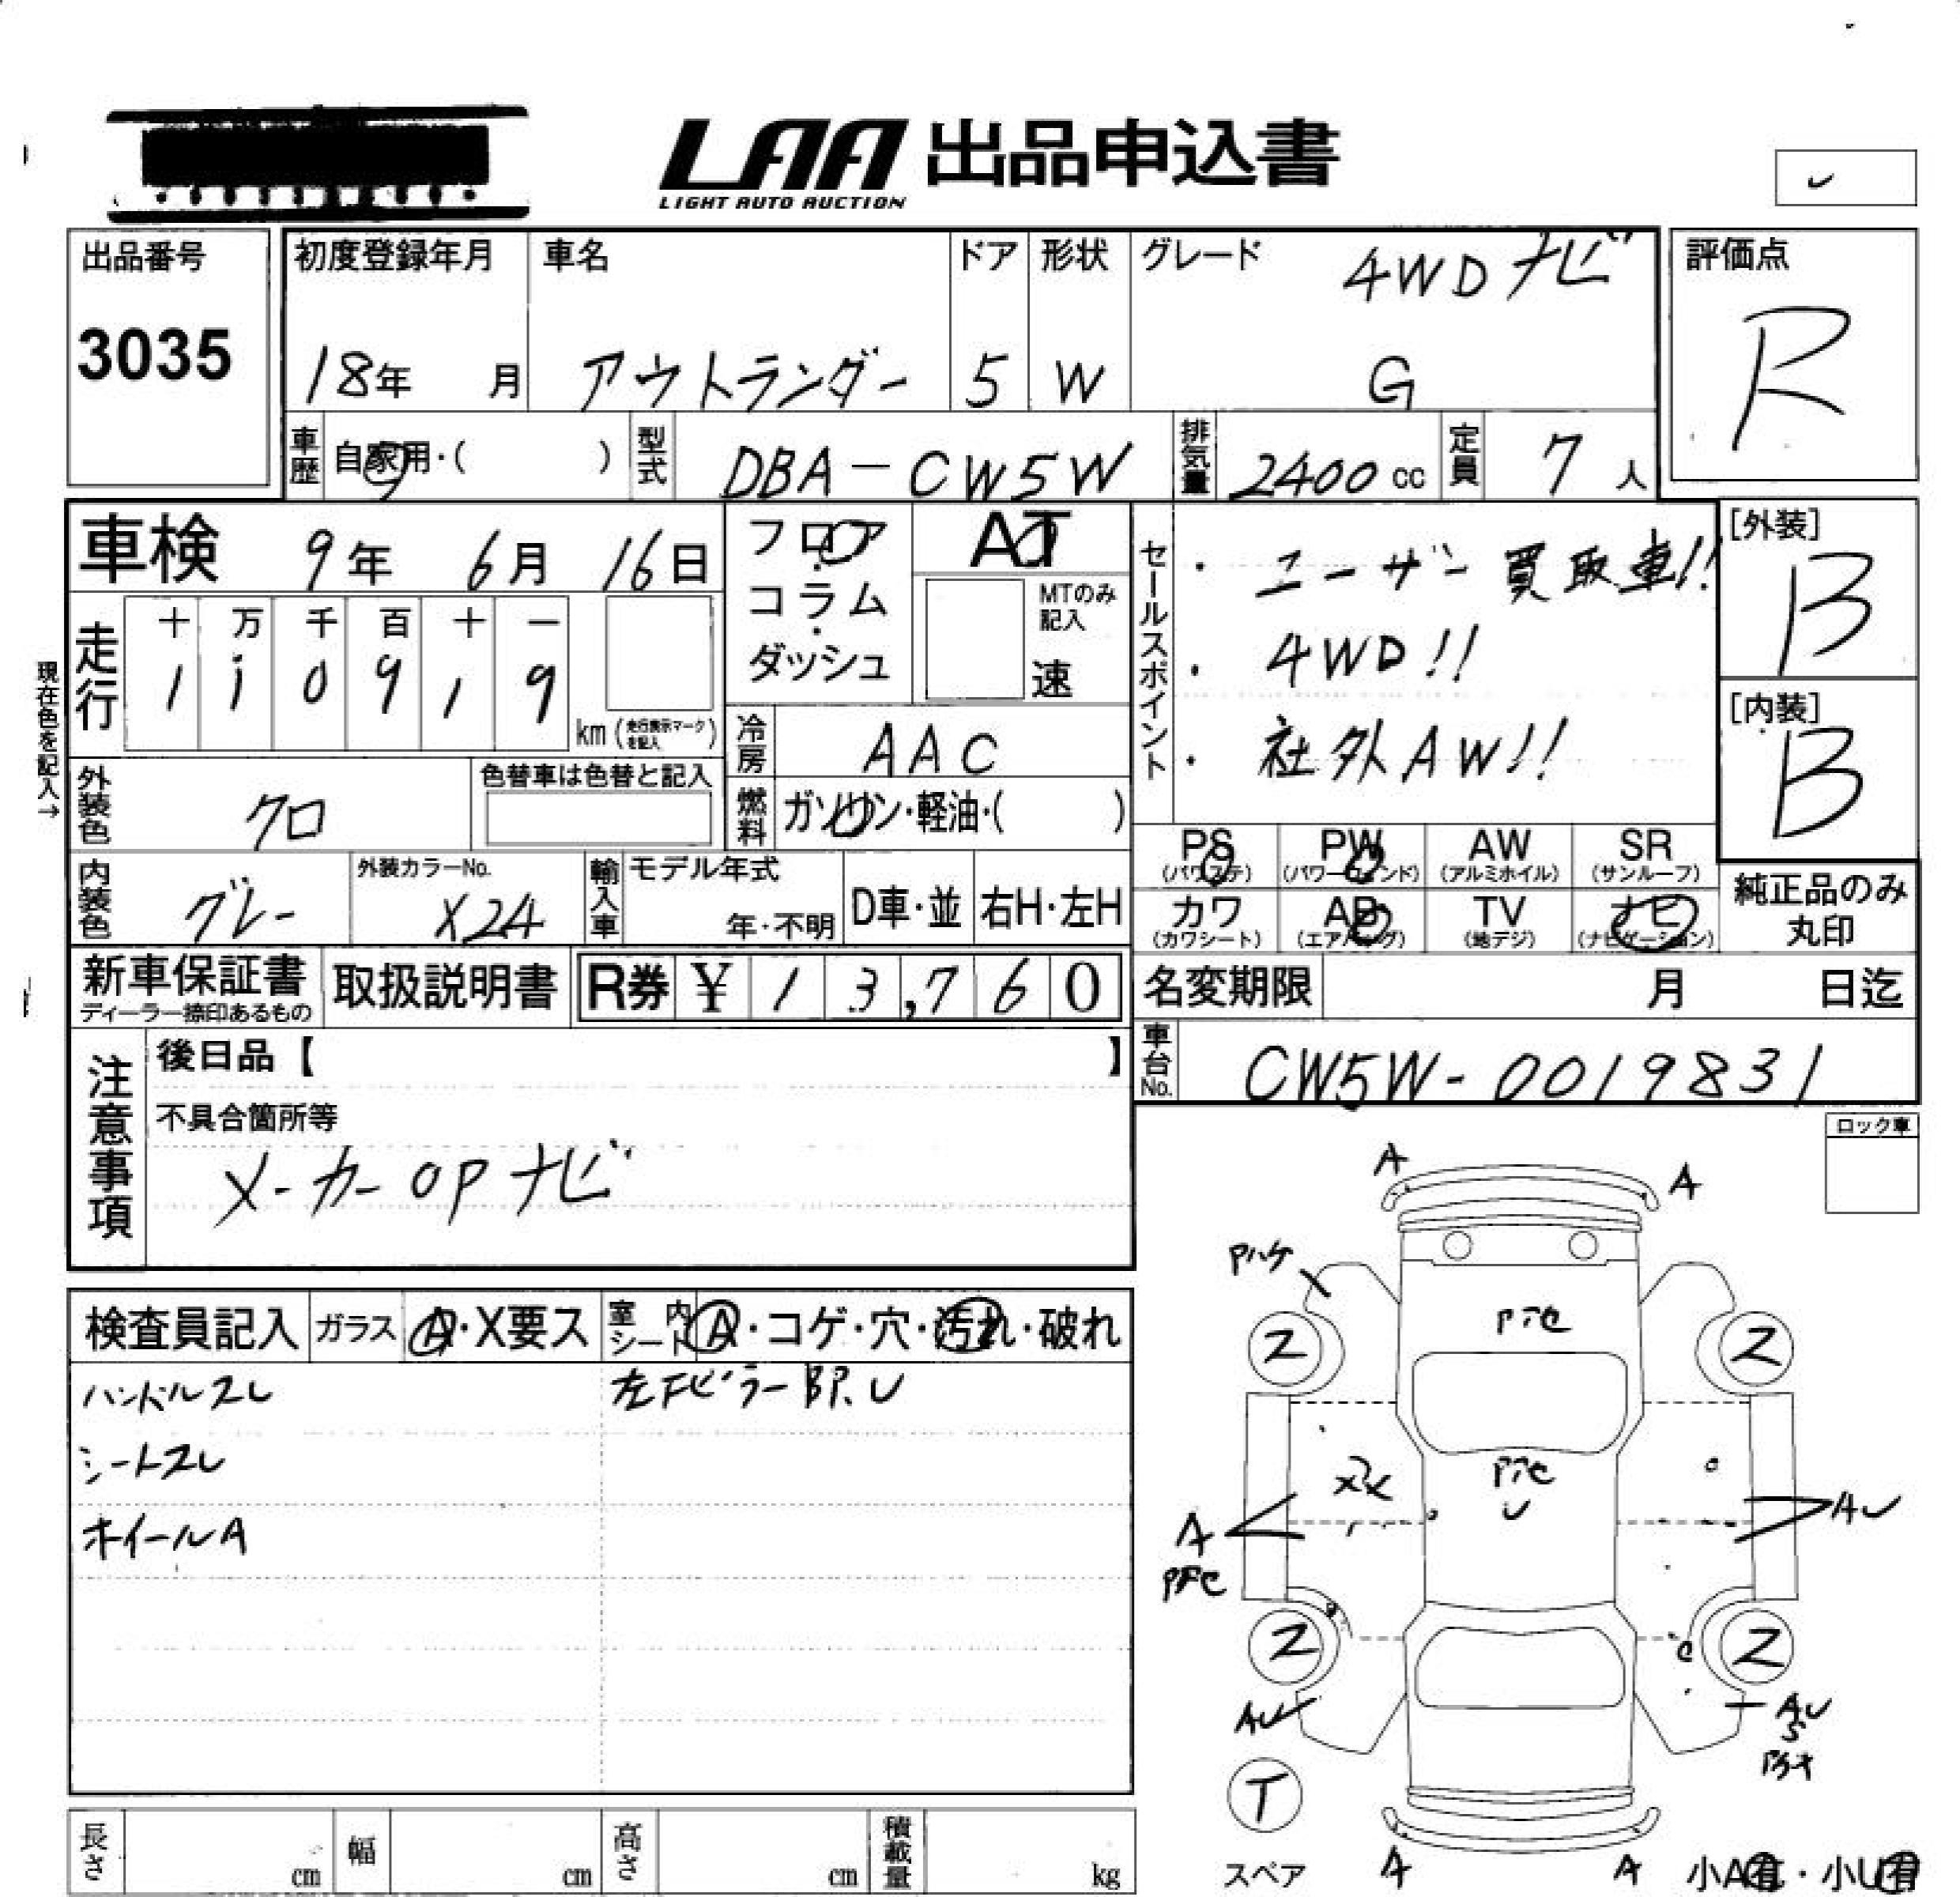 LAA 出品申込書
LIGHT AUTO AUCTION
出品番号
3035
初度登録年月
18年 月
車名
アウトランダー
ドア
5
形状
W
グレード
4WD ナビ
G
評価点
R
車歴 自家用・( )
型式 DBA-CW5W
排気量 2400 cc
定員 7 人
車検 9年 6月 16日
走行
十 万 千 百 十 一
1 1 0 9 1 9
km (走行表示マークを記入)
現在色を記入→
フロア・コラム・ダッシュ
AT
MTのみ記入
速
冷房 AAC
燃料 ガソリン・軽油・( )
外装色 クロ
色替車は色替と記入
内装色 グレー
外装カラーNo.
X24
輸入車
モデル年式
年・不明
D車・並
右H・左H
セールスポイント
・ユーザー買取車!!
・4WD!!
・社外AW!!
[外装]
B
[内装]
B
PS (パワステ)
PW (パワーウィンド)
AW (アルミホイル)
SR (サンルーフ)
カワ (カワシート)
AB (エアバッグ)
TV (地デジ)
ナビ (ナビゲーション)
純正品のみ丸印
新車保証書
ディーラー捺印あるもの
取扱説明書
R券 ¥ 1 3,7 6 0
名変期限 月 日迄
車台No. CW5W-0019831
注意事項
後日品【 】
不具合箇所等
メーカーOPナビ
ロック車
検査員記入
ガラス A・X要ス
室内シート A・コゲ・穴・汚れ・破れ
ハンドルスレ
左Fピラー部.U
シートスレ
ホイールA
A
A
Pハゲ
2
2
A
AU
2
2
AU
AU
S
T
スペア
A
A
小A有・小U有
長さ cm
幅 cm
高さ cm
積載量 kg